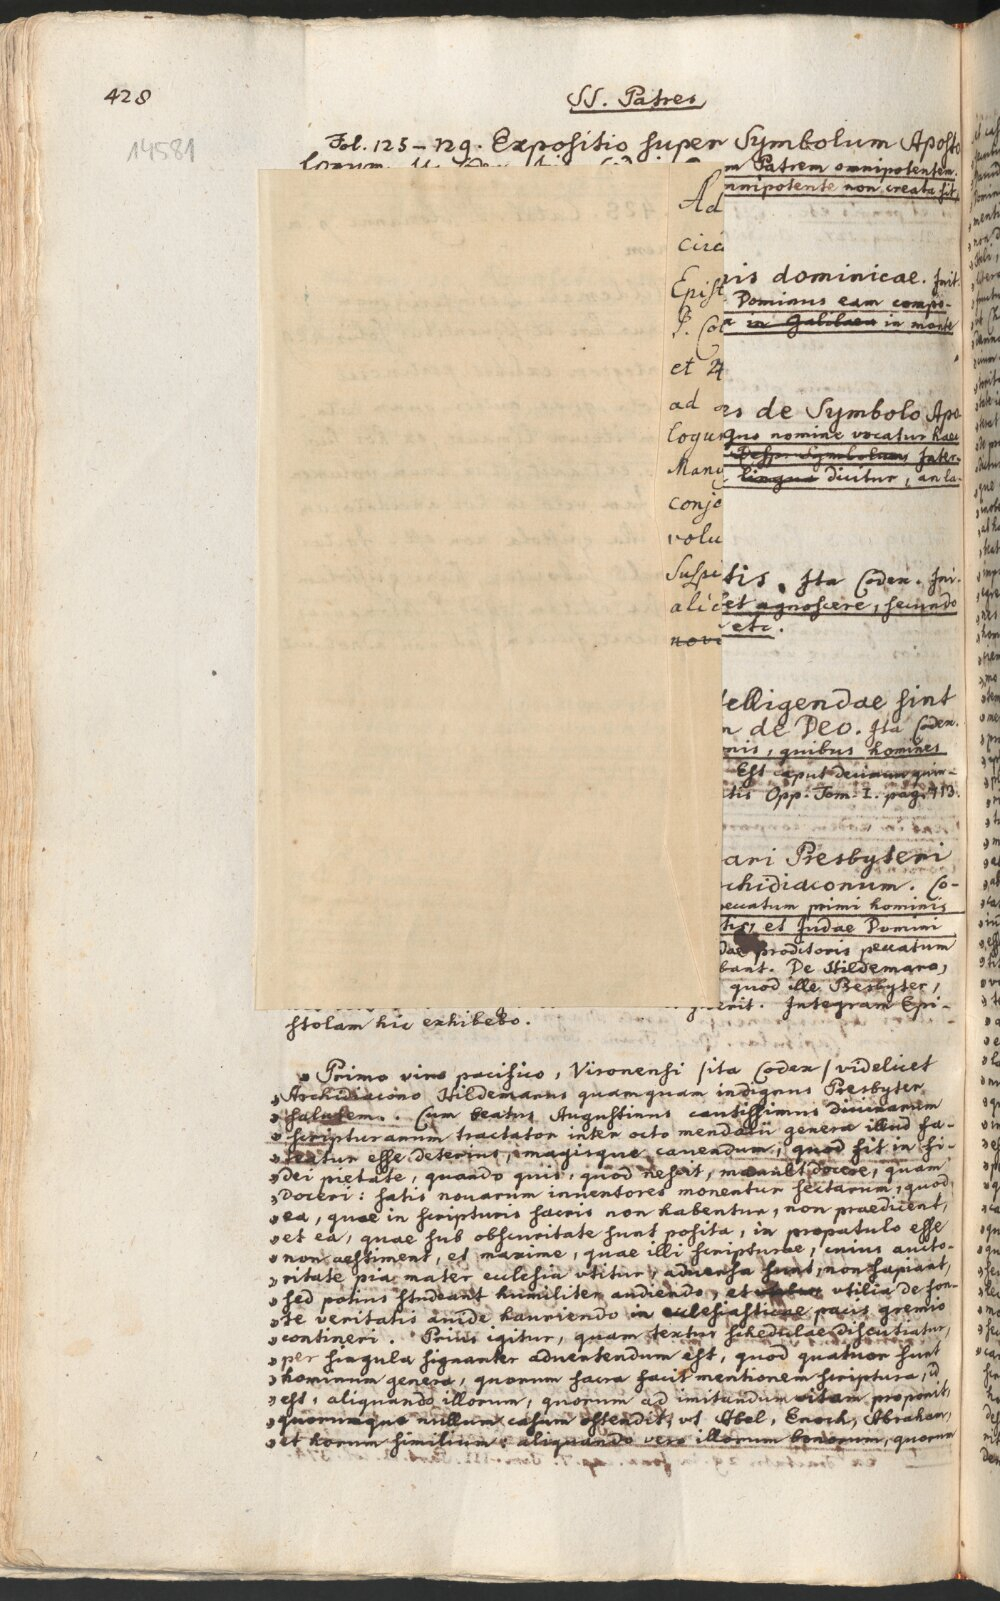 428
SS. Patres
14581
Fol. 125–129. Expositio super Symbolum Aposto
m Patrem omnipotentem.
mnipotente non creata sit,
Ad
circ
Epist
P. Col
et 24
ad
logu
Manu
conje
volu
Suspi
alic
novi
nis dominicae. Init.
Dominus eam compo-
in Galilaea in monte
es de Symbolo Apo
Quo nomine vocatur haec
Resp. Symbolum. Inter.
lingua dicitur, an la-
tis. Ita Codex. Ini.
et agnoscere, secundo
etc.
telligendae sint
n de Deo. Ita Codex.
nis, quibus homines
Est caput decimum quin-
tis Opp. Tom. I. pag. 413.
ari Presbyteri
chidiaconum. Co-
peccatum primi hominis
tis, et Judae Domini
dae proditoris peccatum
bant. De Hildemaro,
quod ille Presbyter,
erit. Integram Epi-
stolam hic exhibebo.
„ Primo viro pacifico, Vironensi /ita Codex/ videlicet
„ Archidiacono Hildemarus quamquam indignus Presbyter
„ salutem. Cum beatus Augustinus cautissimus divinarum
„ scripturarum tractator inter octo mendacii genera illud fa-
„ teatur esse deterius, magisque cavendum, quod fit in fi-
„ dei pietate, quando quis, quod nescit, mauult docere, quam
„ doceri: satis nouarum inuentores monentur sectarum, quod
„ ea, quae in scripturis sacris non habentur, non praedicent,
„ et ea, quae sub obscuritate sunt posita, in propatulo esse
„ non aestiment, et maxime, quae illi scripturae, cuius aucto-
„ ritate pia mater ecclesia vtitur, aduersa sunt, non sapiant,
„ sed potius studeant humiliter audiendo, et vtilia de fon-
„ te veritatis auide hauriendo in ecclesiasticae pacis gremio
„ contineri. Prius igitur, quam textus schedulae discutiatur,
„ per singula signanter aduertendum est, quod quatuor sunt
„ hominum genera, quorum sacra facit mentionem scriptura, id
„ est, aliquando illorum, quorum ad imitandum vitam proponit,
„ quorumque nullum casum ostendit, vt Abel, Enoch, Abraham,
„ et horum similium: aliquando vero illorum bonorum, quorum